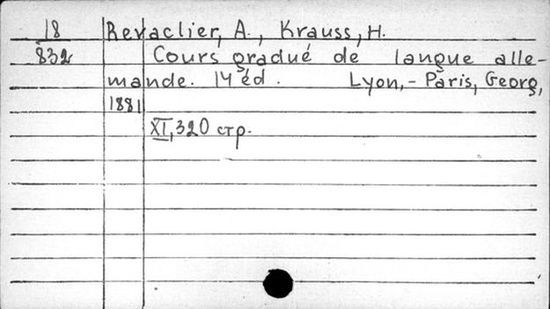 18 Revaclier, A., Krauss, H.
832 Cours gradué de langue alle-
mande. 14 éd. Lyon,- Paris, Georg,
1881
XI, 320 стр.